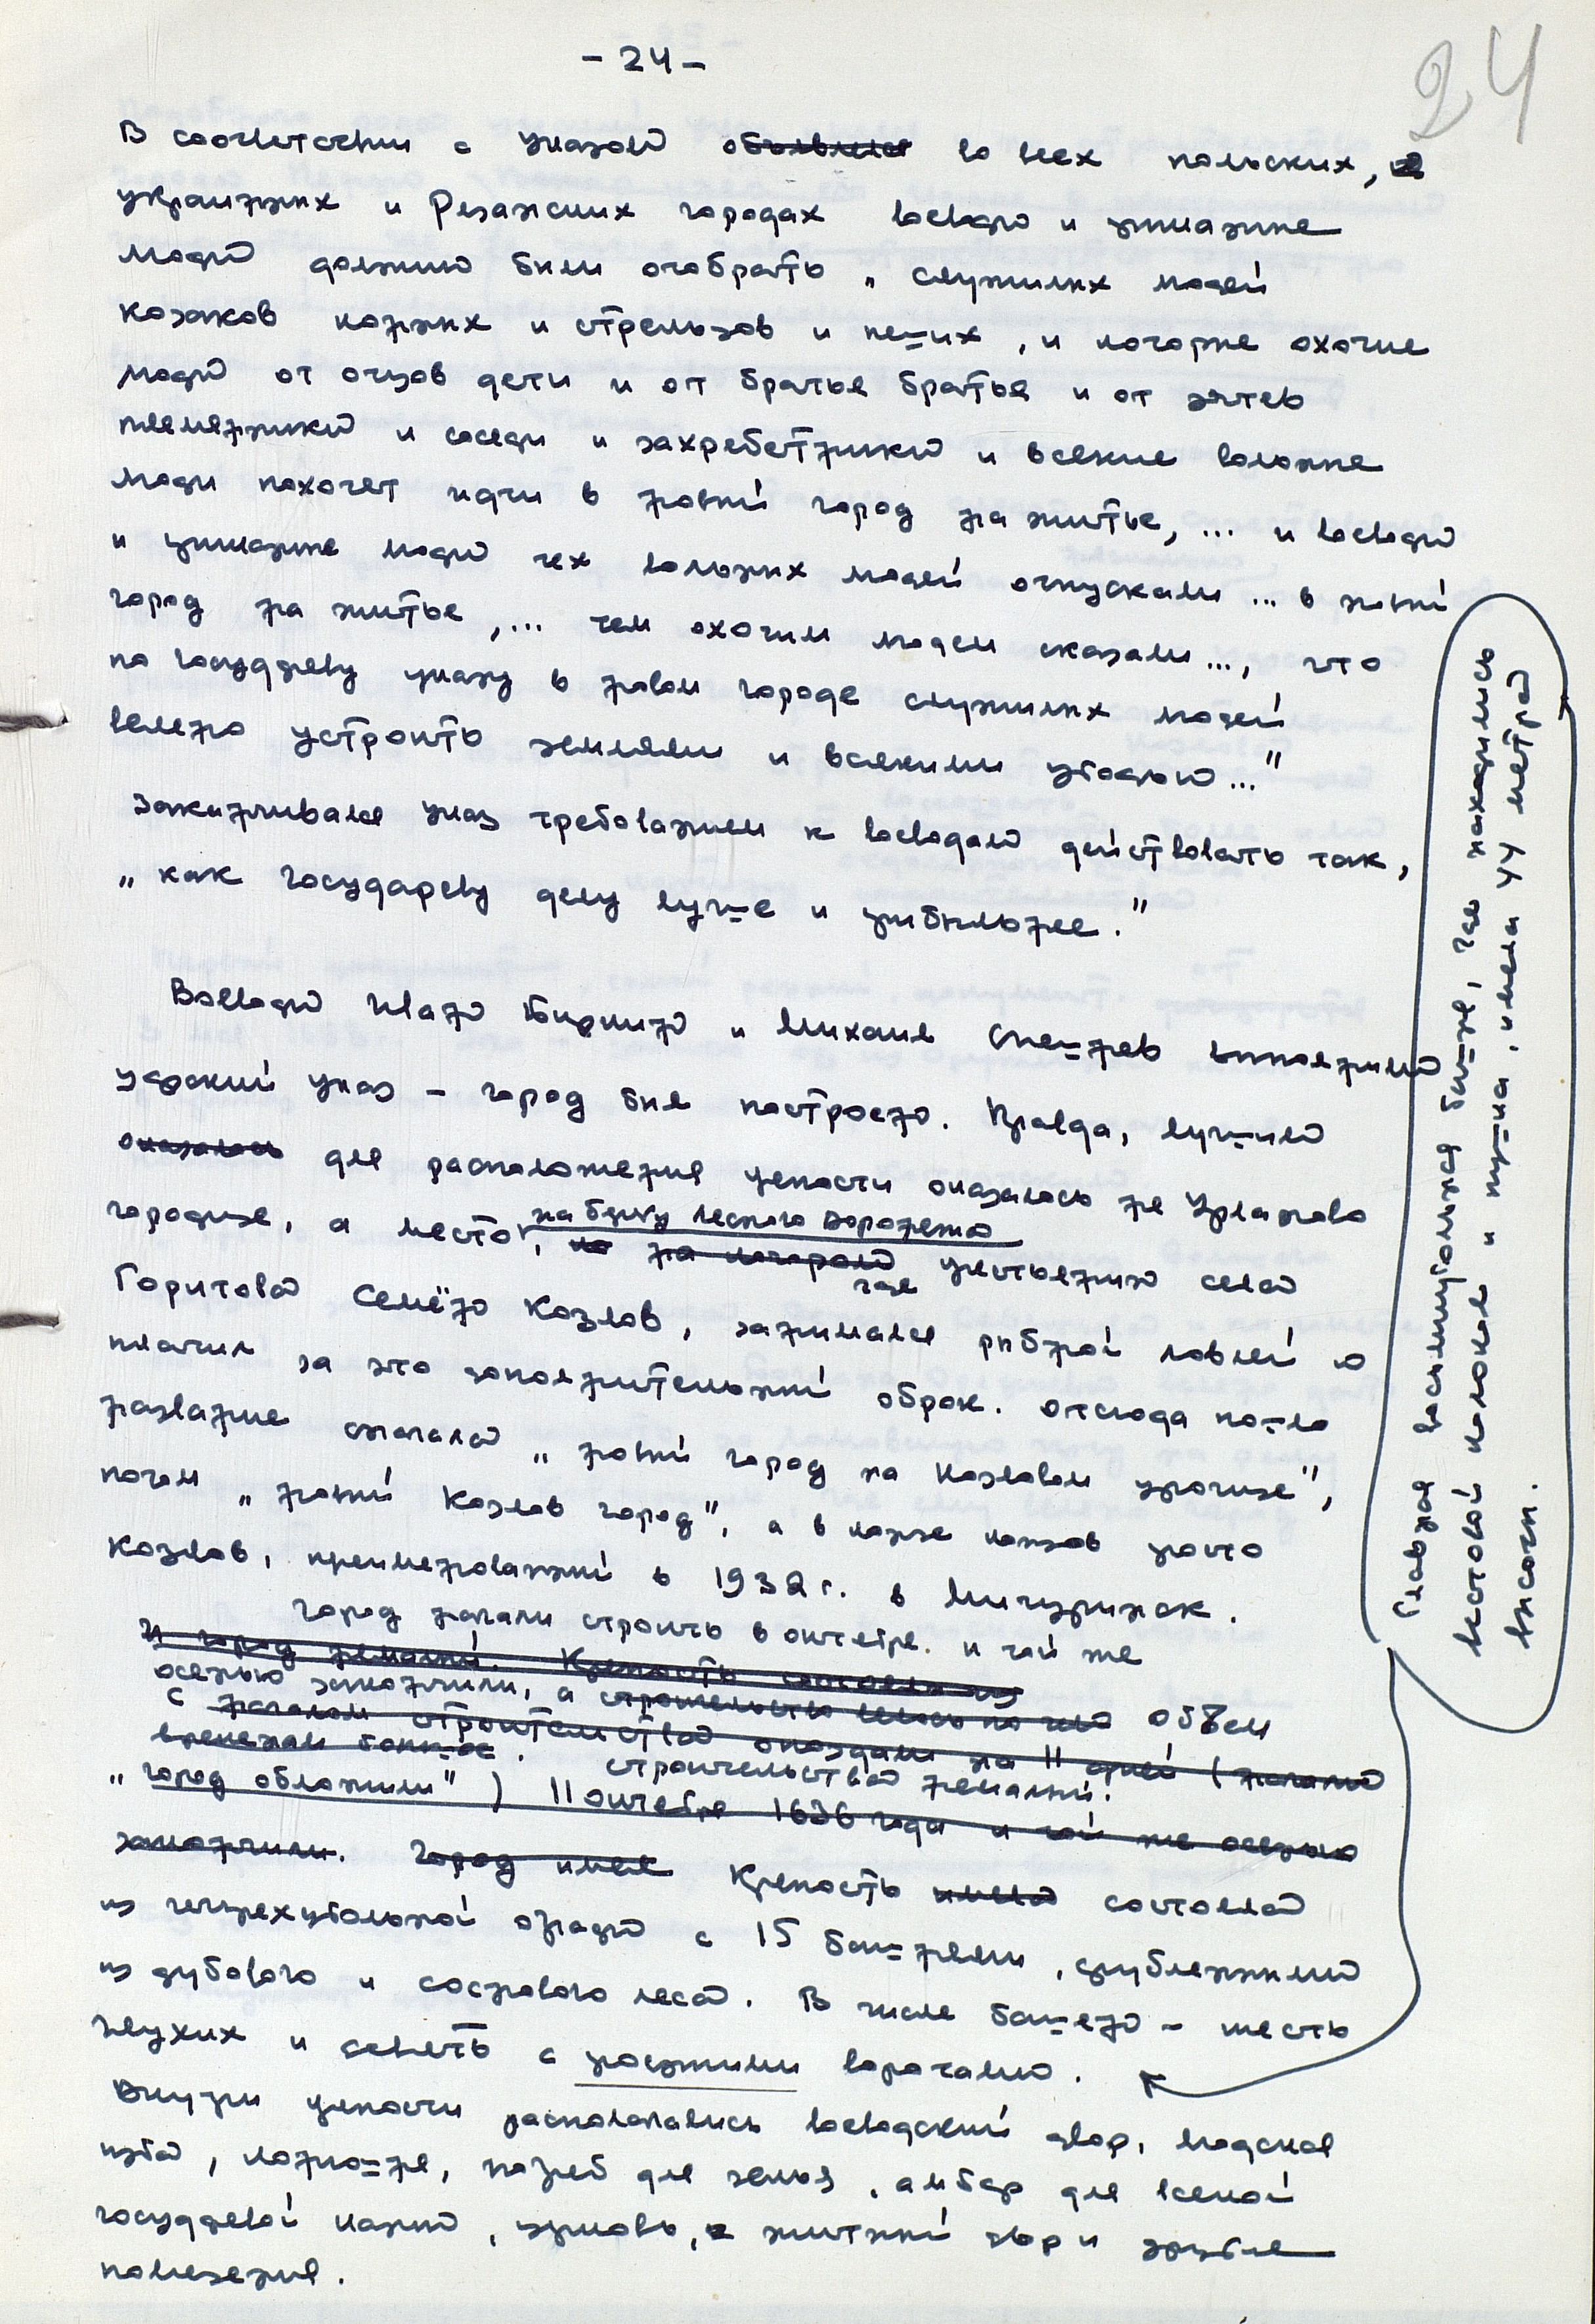 - 24 -
24
В соответствии с указом объявлялся во всех польских, и
украинных и Резанских городах воеводы и приказные
люди должны были отобрать „служилых людей
козаков конных и стрельцов и пеших, и которые охочие
люди от отцов дети и от братье братья и от зятев
племянники и соседи и захребетники и всякие вольные
люди похочет идти в новый город на житье, ... и воеводы
и приказные люди тех вольных людей отпускали ... в новый
город на житье, ... тем охочим людем сказали ..., что
по государеву указу в новом городе служилых людей
велено устроить землями и всякими угодьи..."
Заканчивался указ требованием к воеводам действовать так,
„как государеву делу лучше и прибыльнее."
Воеводы Иван Биркин и Михаил Спешнев выполнили
царский указ – город был построен. Правда, лучшим
оказалось для расположения крепости оказалось не Урлапово
городище, а место, на берегу Лесного Воронежа
но на котором крестьянин села
Торитова Семён Козлов, где занимался рыбной ловлей и
платил за это дополнительный оброк. Отсюда пошло
название сначала „новый город на Козловом урочище",
потом „новый Козлов город", а в конце концов просто
Козлов, преименованный в 1932 г. в Мичуринск.
Город начали строить в октябре. и той же
и город немалый. Крепость состояла из
осенью закончили, а строительство велось по тем объем
с началом строительства опоздали на 11 дней (начали
временам большое. строительства немалый.
„город обложили") 11 октября 1636 года и той же осенью
закончили. Город имел Крепость имела состояла
из четырехугольной ограды с 15 башнями, срубленными
из дубового и соснового леса. В числе башен – шесть
глухих и девять с проезжими воротами.
Внутри крепости располагались воеводский двор, людская
изба, конюшня, погреб для зелья, амбар для всякой
государевой казны, церковь, житный двор и другие
помещения.
Главная восьмиугольная башня, где находились
вестовой колокол и пушка, имела 44 метра
высоты.